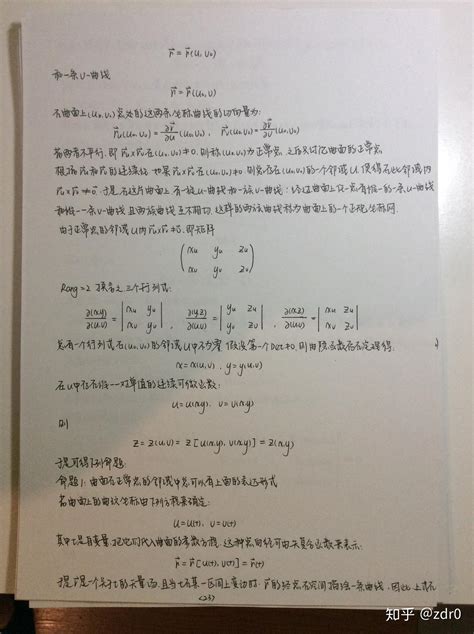 r⃗ = r⃗(u, v₀)
和一条v-曲线
r⃗ = r⃗(u₀, v)
在曲面上(u₀,v₀)点处的这两条坐标曲线的切向量为:
r⃗ᵤ(u₀,v₀) = ∂r⃗/∂u (u₀,v₀), r⃗ᵥ(u₀,v₀) = ∂r⃗/∂v (u₀,v₀)
若两者不平行, 即 r⃗ᵤ×r⃗ᵥ 在(u₀,v₀)≠0, 则称(u₀,v₀)为正常点, 之后只讨论曲面的正常点.
根据 r⃗ᵤ, r⃗ᵥ 的连续性, 如果 r⃗ᵤ×r⃗ᵥ 在(u₀,v₀)≠0, 则必存在(u₀,v₀)的一个邻域U, 使得在此邻域内
r⃗ᵤ×r⃗ᵥ≠0. 于是在这片曲面上, 有一族u-曲线和一族v-曲线: 经过曲面上每一点有唯一的一条u-曲线
和唯一一条v-曲线且两族曲线互不相切, 这样的两族曲线称为曲面上的一个正规坐标网.
由于正常点的邻域U内 r⃗ᵤ×r⃗ᵥ≠0, 即矩阵
( xu yu zu
xv yv zv )
Rang=2. 换言之, 三个行列式:
∂(x,y)/∂(u,v) = | xu yu ; xv yv | , ∂(y,z)/∂(u,v) = | yu zu ; yv zv | , ∂(x,z)/∂(u,v) = | xu zu ; xv zv |
总有一个行列式在(u₀,v₀)的邻域U中不为零, 假设第一个Det≠0, 则由隐函数存在定理得:
x=x(u,v), y=y(u,v)
在U中存在唯一一对单值的连续可微函数:
u=u(x,y), v=v(x,y)
则
z = z(u,v) = z[u(x,y), v(x,y)] = z(x,y)
于是可得下列命题:
命题1: 曲面在正常点的邻域中总可以有上面的表达形式
若曲面上的曲线坐标由下列方程来确定:
u=u(t), v=v(t)
其中t是自变量, 把它们代入曲面的参数方程. 这种点的径可由其复合函数来表示:
r⃗ = r⃗[u(t), v(t)] = r⃗(t)
于是 r⃗ 是一个关于t的矢量函 且当t在某一区间上变动时, r⃗ 的终点在空间描绘一条曲线, 因此上式在
(23)
知乎 @zdr0